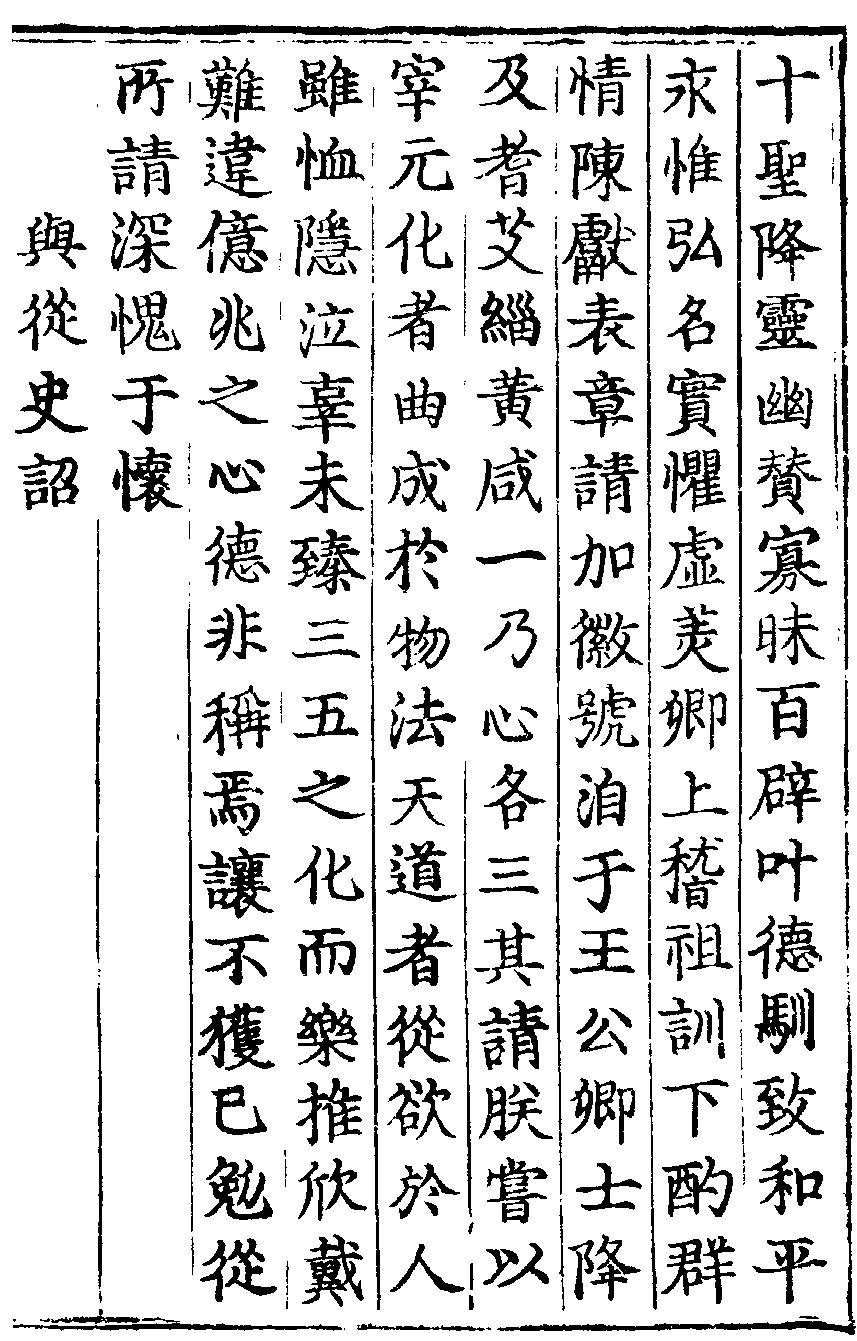 十聖降靈幽賛寡昧百辟叶德馴致和平
永惟弘名實懼虛美卿上稽祖訓下酌群
情陳獻表章請加徽號洎于王公卿士降
及耆艾緇黄咸一乃心各三其請朕嘗以
宰元化者曲成於物法天道者從欲於人
雖恤隱泣辜未臻三五之化而樂推欣戴
難違億兆之心德非稱焉讓不獲已勉從
所請深愧于懷
與從史詔